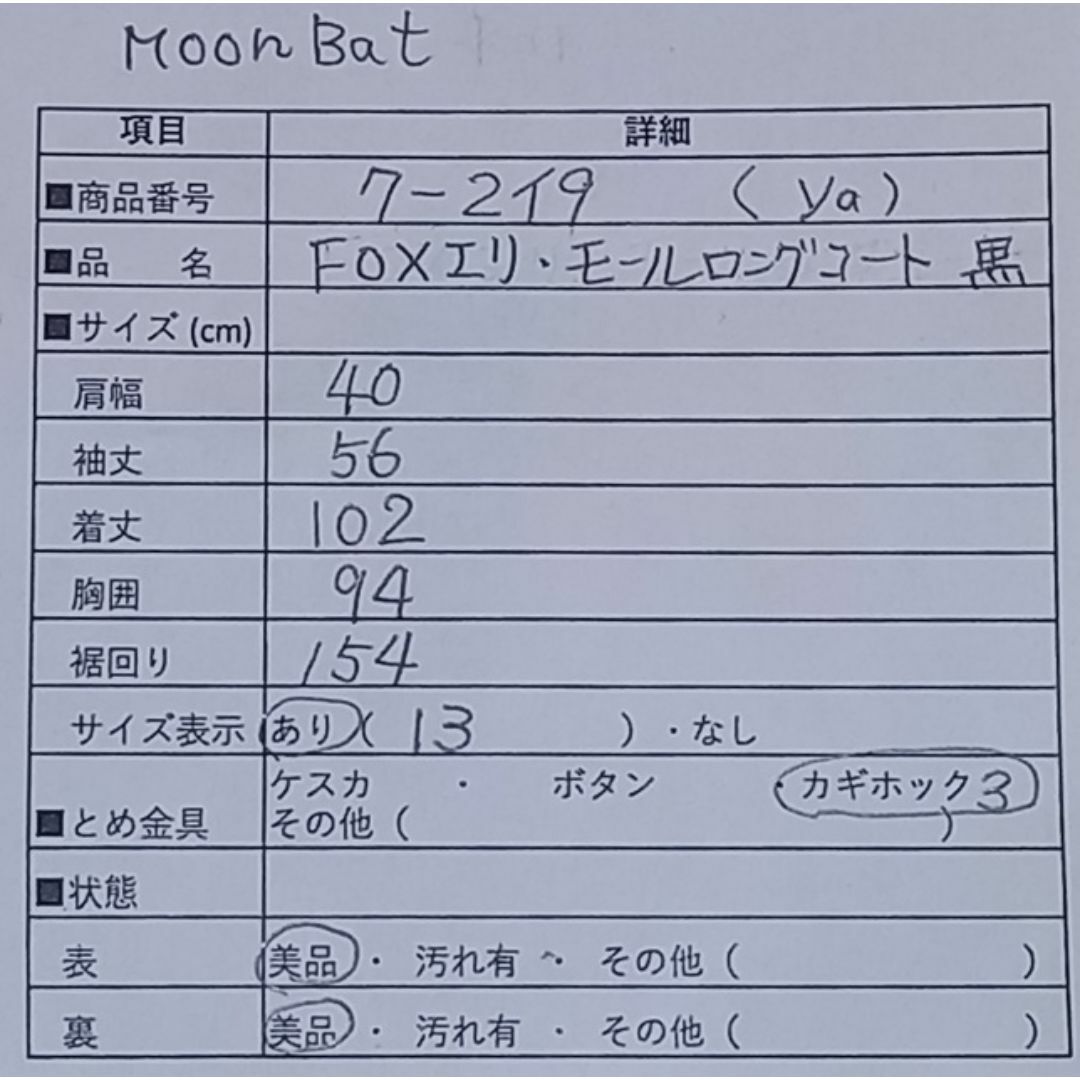 Moon Bat
項目 詳細
■商品番号 7-219 (ya)
■品 名 FOXエリ・モールロングコート 黒
■サイズ(cm)
肩幅 40
袖丈 56
着丈 102
胸囲 94
裾回り 154
サイズ表示 あり( 13 )・なし
ケスカ ・ ボタン ・カギホック3
■とめ金具 その他( )
■状態
表 美品・ 汚れ有 ・ その他( )
裏 美品・ 汚れ有 ・ その他( )